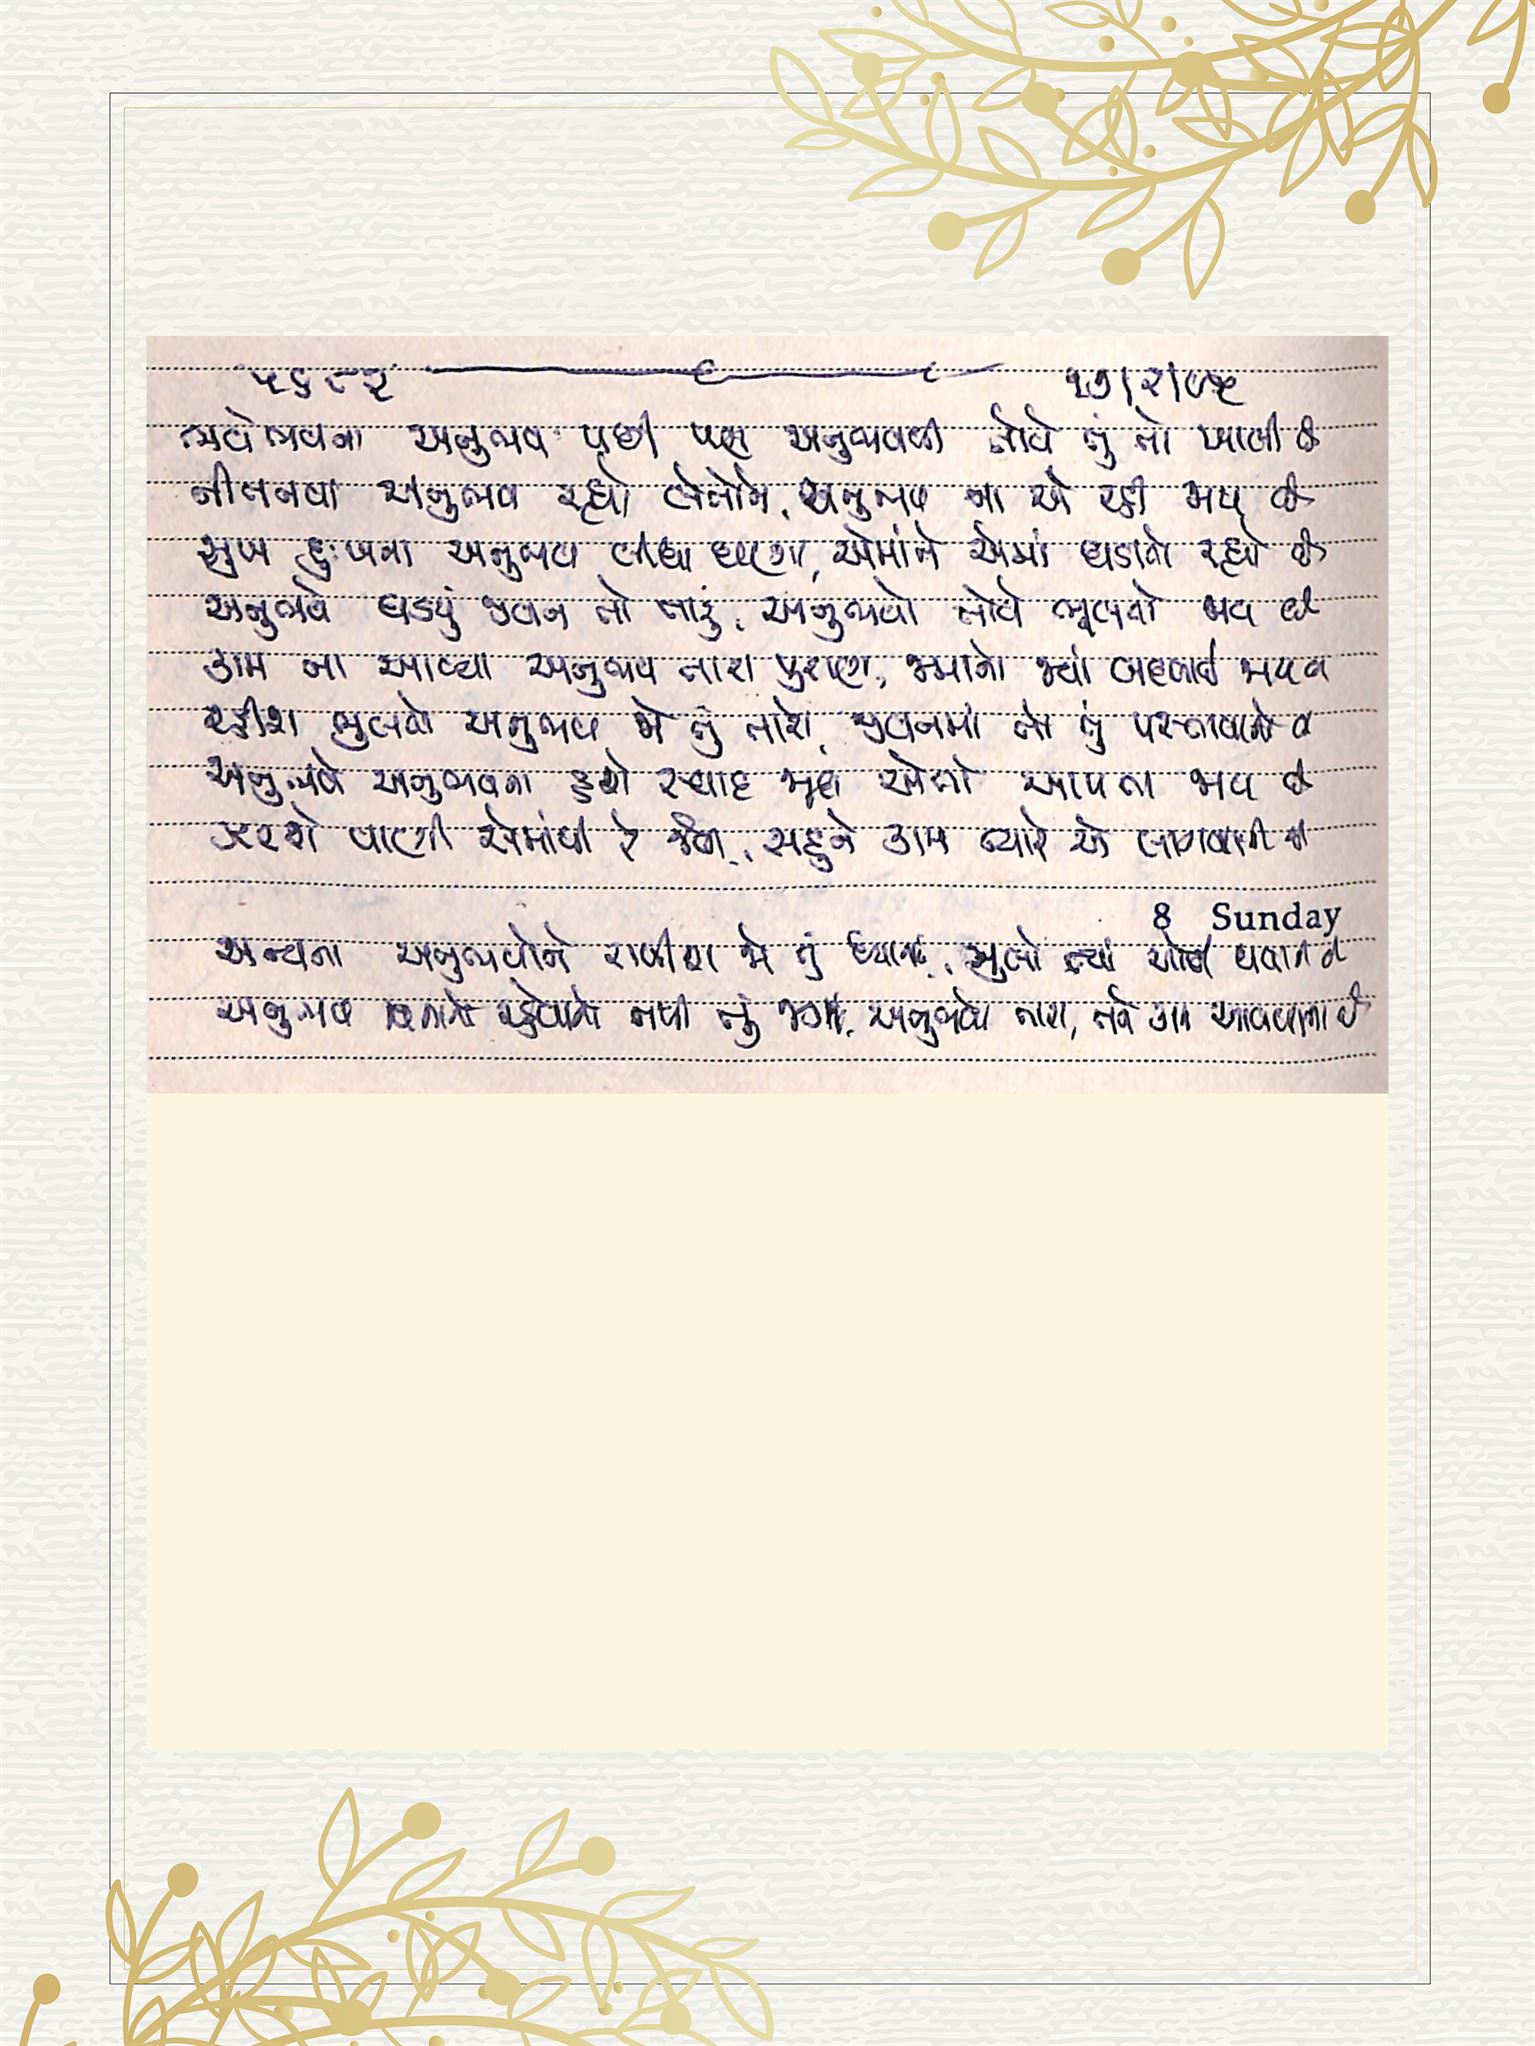 ૫૬૮૨ ૨૭/૨/૯૫
ભવેભવના અનુભવ પછી પણ અનુભવથી તોયે તું તો ખાલી છે
નીતનવા અનુભવ રહ્યો લેતોને, અનુભવ ના એ રહી જાય છે
સુખ દુઃખના અનુભવ લીધા ઘણા, એમાંને એમાં ઘડાતો રહ્યો છે
અનુભવે ઘડયું જીવન તો તારું, અનુભવો તોયે ભૂલતો જાય છે
કામ ના આવ્યા અનુભવ તારા પુરાણા, જમાનો જ્યાં બદલાઈ જાય છે
રહીશ ભુલતો અનુભવ જો તું તારો, જીવનમાં તો તું પસ્તાવાનો છે
અનુભવે અનુભવના હશે સ્વાદ જુદા એનો આપતા જાય છે
ઝરશે વાણી એમાંથી રે જેવી, સહુને કામ ત્યારે એ લાગવાની છે
8 Sunday
અન્યના અનુભવોને રાખીશ જો તું ધ્યાનમાં, ભુલો ત્યાં ઓછી થવાની છે
અનુભવ વિનાનો રહેવાનો નથી તું જગમાં, અનુભવો તારા, તને કામ આવવાના છે